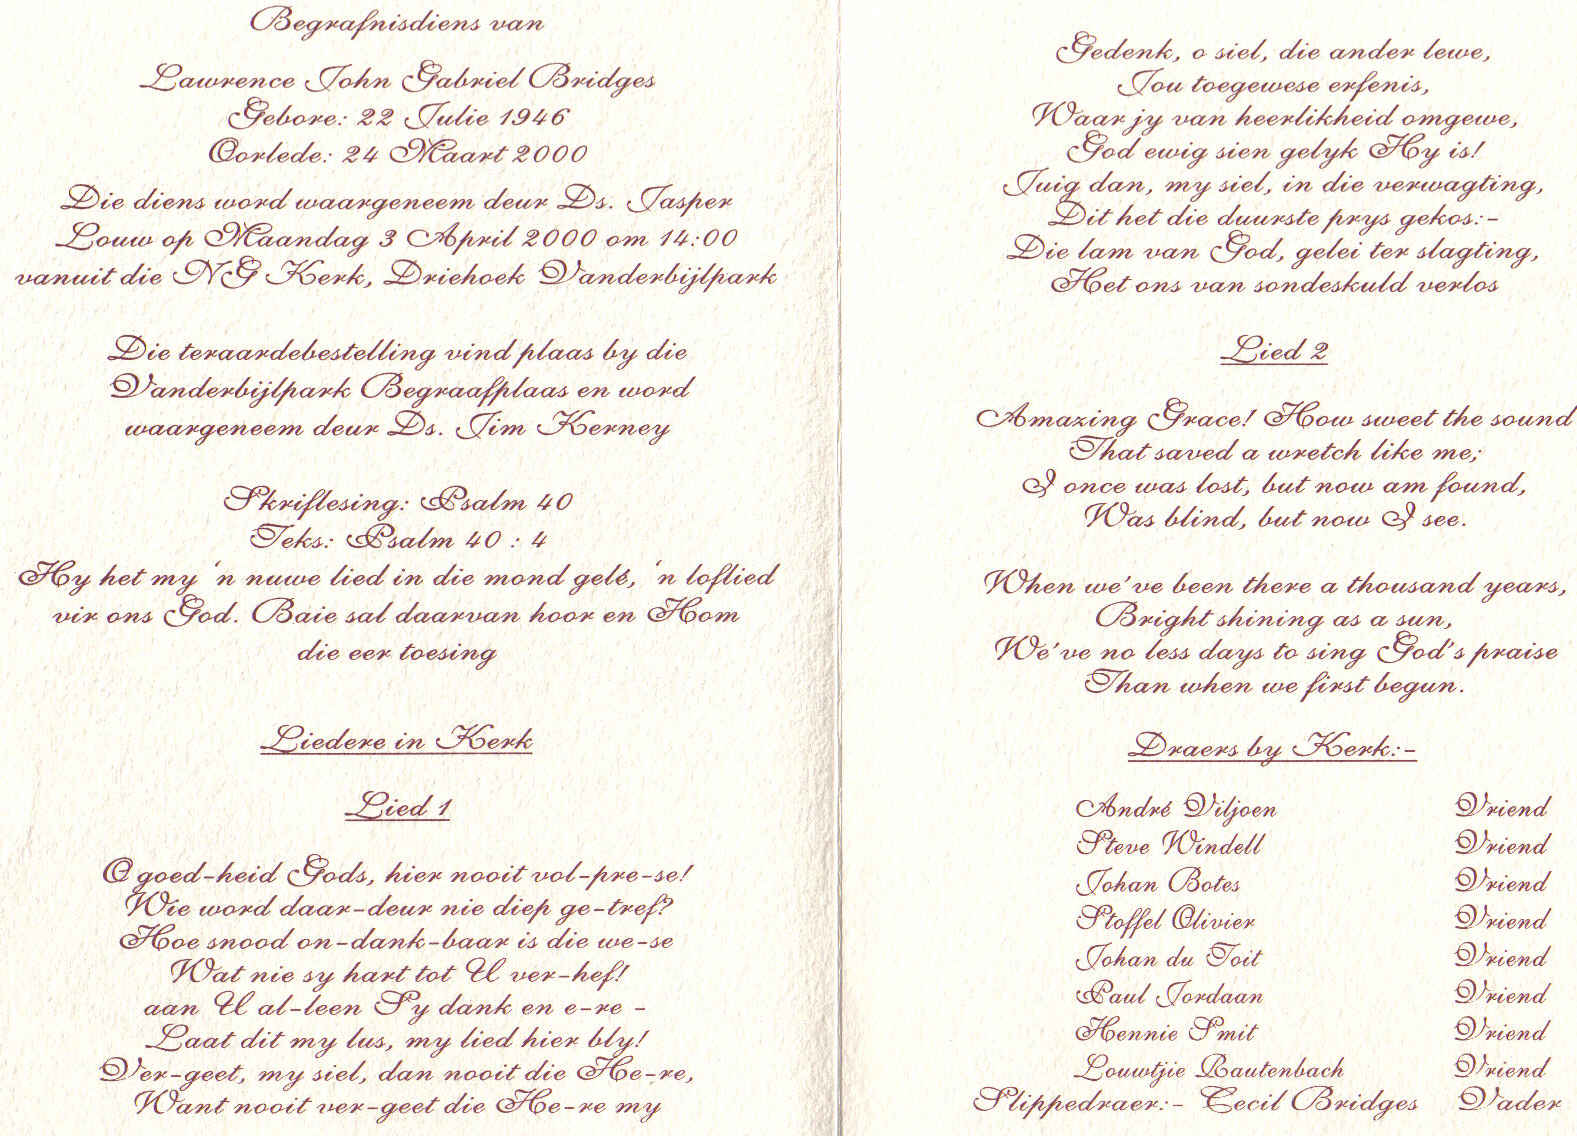 Begrafnisdiens van
Lawrence John Gabriel Bridges
Gebore: 22 Julie 1946
Oorlede: 24 Maart 2000
Die diens word waargeneem deur Ds. Jasper
Louw op Maandag 3 April 2000 om 14:00
vanuit die NG Kerk, Driehoek Vanderbijlpark
Die teraardebestelling vind plaas by die
Vanderbijlpark Begraafplaas en word
waargeneem deur Ds. Jim Kerney
Skriflesing: Psalm 40
Teks: Psalm 40 : 4
Hy het my 'n nuwe lied in die mond gelé, 'n loflied
vir ons God. Baie sal daarvan hoor en Hom
die eer toesing
Liedere in Kerk
Lied 1
O goed-heid Gods, hier nooit vol-pre-se!
Wie word daar-deur nie diep ge-tref?
Hoe snood on-dank-baar is die we-se
Wat nie sy hart tot U ver-hef!
aan U al-leen Sy dank en e-re -
Laat dit my lus, my lied hier bly!
Ver-geet, my siel, dan nooit die He-re,
Want nooit ver-geet die He-re my
Gedenk, o siel, die ander lewe,
Jou toegewese erfenis,
Waar jy van heerlikheid omgewe,
God ewig sien gelyk Hy is!
Juig dan, my siel, in die verwagting,
Dit het die duurste prys gekos:-
Die lam van God, gelei ter slagting,
Het ons van sondeskuld verlos
Lied 2
Amazing Grace! How sweet the sound
That saved a wretch like me;
I once was lost, but now am found,
Was blind, but now I see.
When we've been there a thousand years,
Bright shining as a sun,
We've no less days to sing God's praise
Than when we first begun.
Draers by Kerk:-
André Viljoen Vriend
Steve Windell Vriend
Johan Botes Vriend
Stoffel Olivier Vriend
Johan du Toit Vriend
Paul Jordaan Vriend
Hennie Smit Vriend
Louwtjie Rautenbach Vriend
Slippedraer:- Cecil Bridges Vader